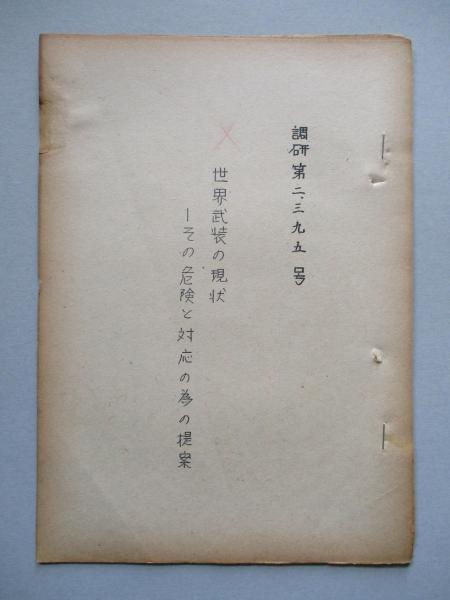 調研第二、三九五号
世界武装の現状
ーその危険と対応の為の提案